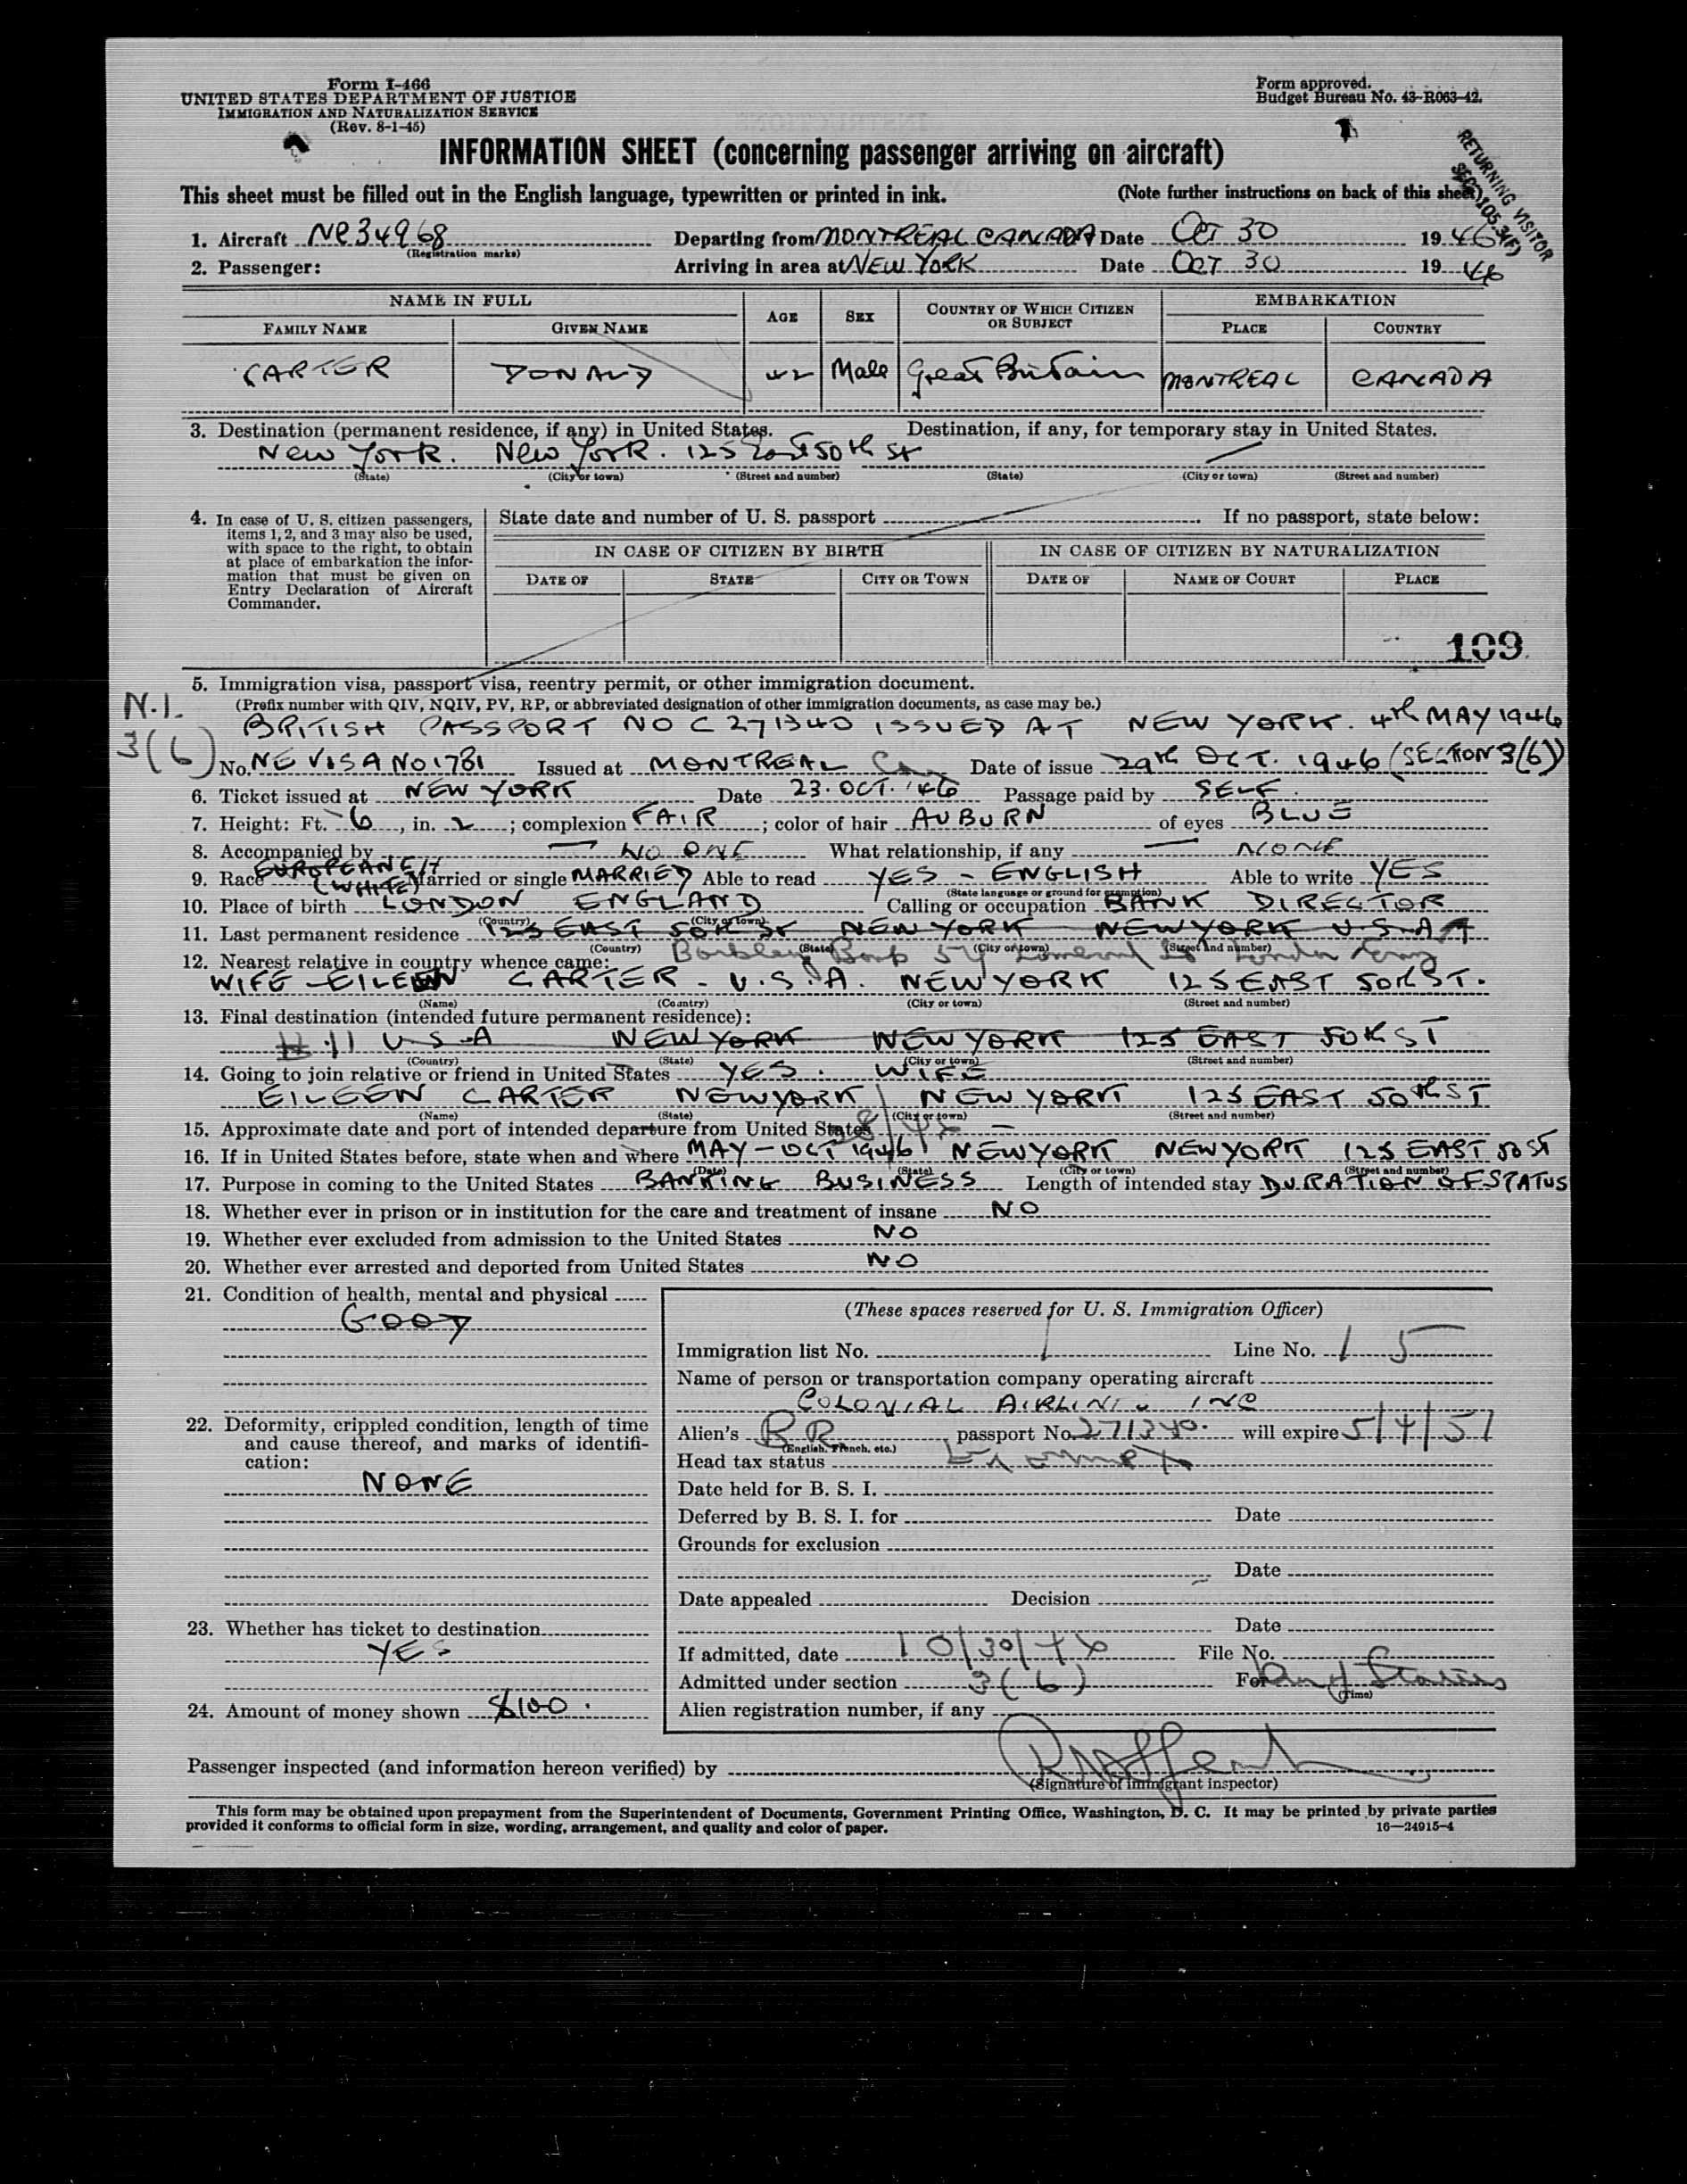 Form I-466
UNITED STATES DEPARTMENT OF JUSTICE
IMMIGRATION AND NATURALIZATION SERVICE
(Rev. 8-1-45)
Form approved.
Budget Bureau No. 43-R063-42.
INFORMATION SHEET (concerning passenger arriving on aircraft)
RETURNING VISITOR
SEC. 105.3(F)
This sheet must be filled out in the English language, typewritten or printed in ink. (Note further instructions on back of this sheet)
1. Aircraft NC34968 Departing from MONTREAL CANADA Date OCT 30 1946
(Registration marks)
2. Passenger: Arriving in area at NEW YORK Date OCT 30 1946
NAME IN FULL AGE SEX COUNTRY OF WHICH CITIZEN OR SUBJECT EMBARKATION
FAMILY NAME GIVEN NAME PLACE COUNTRY
CARTER DONALD 42 Male Great Britain MONTREAL CANADA
3. Destination (permanent residence, if any) in United States. Destination, if any, for temporary stay in United States.
New York. New York. 125 East 50th St
(State) (City or town) (Street and number) (State) (City or town) (Street and number)
4. In case of U. S. citizen passengers, items 1, 2, and 3 may also be used, with space to the right, to obtain at place of embarkation the information that must be given on Entry Declaration of Aircraft Commander.
State date and number of U. S. passport If no passport, state below:
IN CASE OF CITIZEN BY BIRTH IN CASE OF CITIZEN BY NATURALIZATION
DATE OF STATE CITY OR TOWN DATE OF NAME OF COURT PLACE
109
5. Immigration visa, passport visa, reentry permit, or other immigration document.
N.I. (Prefix number with QIV, NQIV, PV, RP, or abbreviated designation of other immigration documents, as case may be.)
BRITISH PASSPORT NO C 271340 ISSUED AT NEW YORK. 4th MAY 1946
3(6) No. NE VISA NO 1781 Issued at MONTREAL Can Date of issue 29th OCT. 1946 (SECTION 3(6))
6. Ticket issued at NEW YORK Date 23. OCT. '46 Passage paid by SELF.
7. Height: Ft. 6, in. 2; complexion FAIR; color of hair AUBURN of eyes BLUE
8. Accompanied by — NO ONE What relationship, if any — NONE
9. Race (WHITE) Married or single MARRIED Able to read YES - ENGLISH Able to write YES
(State language or ground for exemption)
10. Place of birth LONDON ENGLAND Calling or occupation BANK DIRECTOR
(Country) (City or town)
11. Last permanent residence 125 EAST 50th St NEW YORK NEW YORK U.S.A
(Country) (State) (City or town) (Street and number)
12. Nearest relative in country whence came: 54 Lombard St London
WIFE - EILEEN CARTER - U.S.A. NEW YORK 125 EAST 50th ST.
(Name) (Country) (City or town) (Street and number)
13. Final destination (intended future permanent residence):
U.S.A NEW YORK NEW YORK 125 EAST 50th ST
(Country) (State) (City or town) (Street and number)
14. Going to join relative or friend in United States YES. WIFE
EILEEN CARTER NEW YORK NEW YORK 125 EAST 50th ST
(Name) (State) (City or town) (Street and number)
15. Approximate date and port of intended departure from United States —
16. If in United States before, state when and where MAY - OCT 1946 NEW YORK NEW YORK 125 EAST 50 ST
(Date) (State) (City or town) (Street and number)
17. Purpose in coming to the United States BANKING BUSINESS Length of intended stay DURATION OF STATUS
18. Whether ever in prison or in institution for the care and treatment of insane NO
19. Whether ever excluded from admission to the United States NO
20. Whether ever arrested and deported from United States NO
21. Condition of health, mental and physical
GOOD
22. Deformity, crippled condition, length of time and cause thereof, and marks of identification:
NONE
23. Whether has ticket to destination
YES
24. Amount of money shown $100.
(These spaces reserved for U. S. Immigration Officer)
Immigration list No. 1 Line No. 15
Name of person or transportation company operating aircraft
COLONIAL AIRLINES INC
Alien's BR passport No. 271340. will expire 5/4/51
(English, French, etc.)
Head tax status Exempt
Date held for B. S. I.
Deferred by B. S. I. for Date
Grounds for exclusion
Date
Date appealed Decision
Date
If admitted, date 10/30/46 File No.
Admitted under section 3(6) For Dur of Status
(Time)
Alien registration number, if any
Passenger inspected (and information hereon verified) by
(Signature of immigrant inspector)
This form may be obtained upon prepayment from the Superintendent of Documents, Government Printing Office, Washington, D. C. It may be printed by private parties
provided it conforms to official form in size, wording, arrangement, and quality and color of paper. 16—24915-4